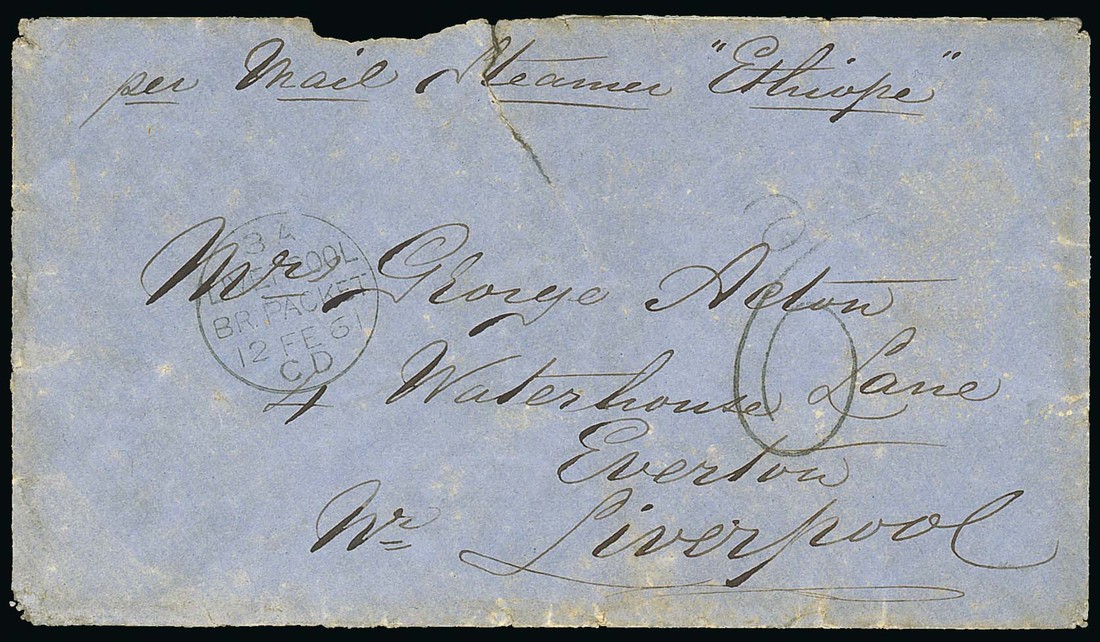 per Mail Steamer "Ethiope"
Mr George Acton
4 Waterhouse Lane
Everton
Nr Liverpool
LIVERPOOL
BR. PACKET
12 FE 61
CD
6